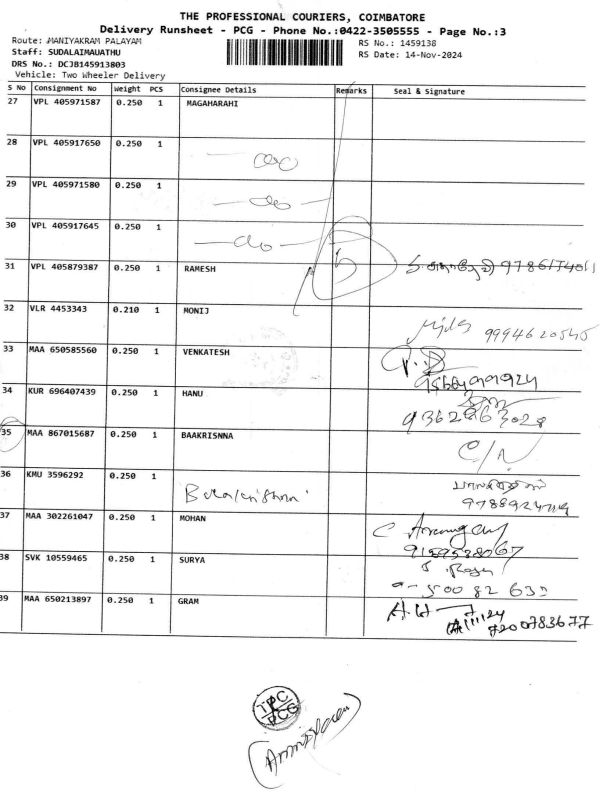 THE PROFESSIONAL COURIERS, COIMBATORE
Delivery Runsheet - PCG - Phone No.:0422-3505555 - Page No.:3
Route: MANIYAKRAM PALAYAM
Staff: SUDALAIMAUATHU
RS No.: 1459138
DRS No.: DCJB145913803
RS Date: 14-Nov-2024
Vehicle: Two Wheeler Delivery
S No Consignment No Weight PCS Consignee Details Remarks Seal & Signature
27 VPL 405971587 0.250 1 MAGAHARAHI
28 VPL 405917650 0.250 1
29 VPL 405971580 0.250 1
30 VPL 405917645 0.250 1
31 VPL 405879387 0.250 1 RAMESH
32 VLR 4453343 0.210 1 MONIJ
9994620545
33 MAA 650585560 0.250 1 VENKATESH
34 KUR 696407439 0.250 1 HANU
35 MAA 867015687 0.250 1 BAAKRISNNA
C/N
36 KMU 3596292 0.250 1
37 MAA 302261047 0.250 1 MOHAN
9159538067
38 SVK 10559465 0.250 1 SURYA
39 MAA 650213897 0.250 1 GRAM
7200783677
TPC
PCG